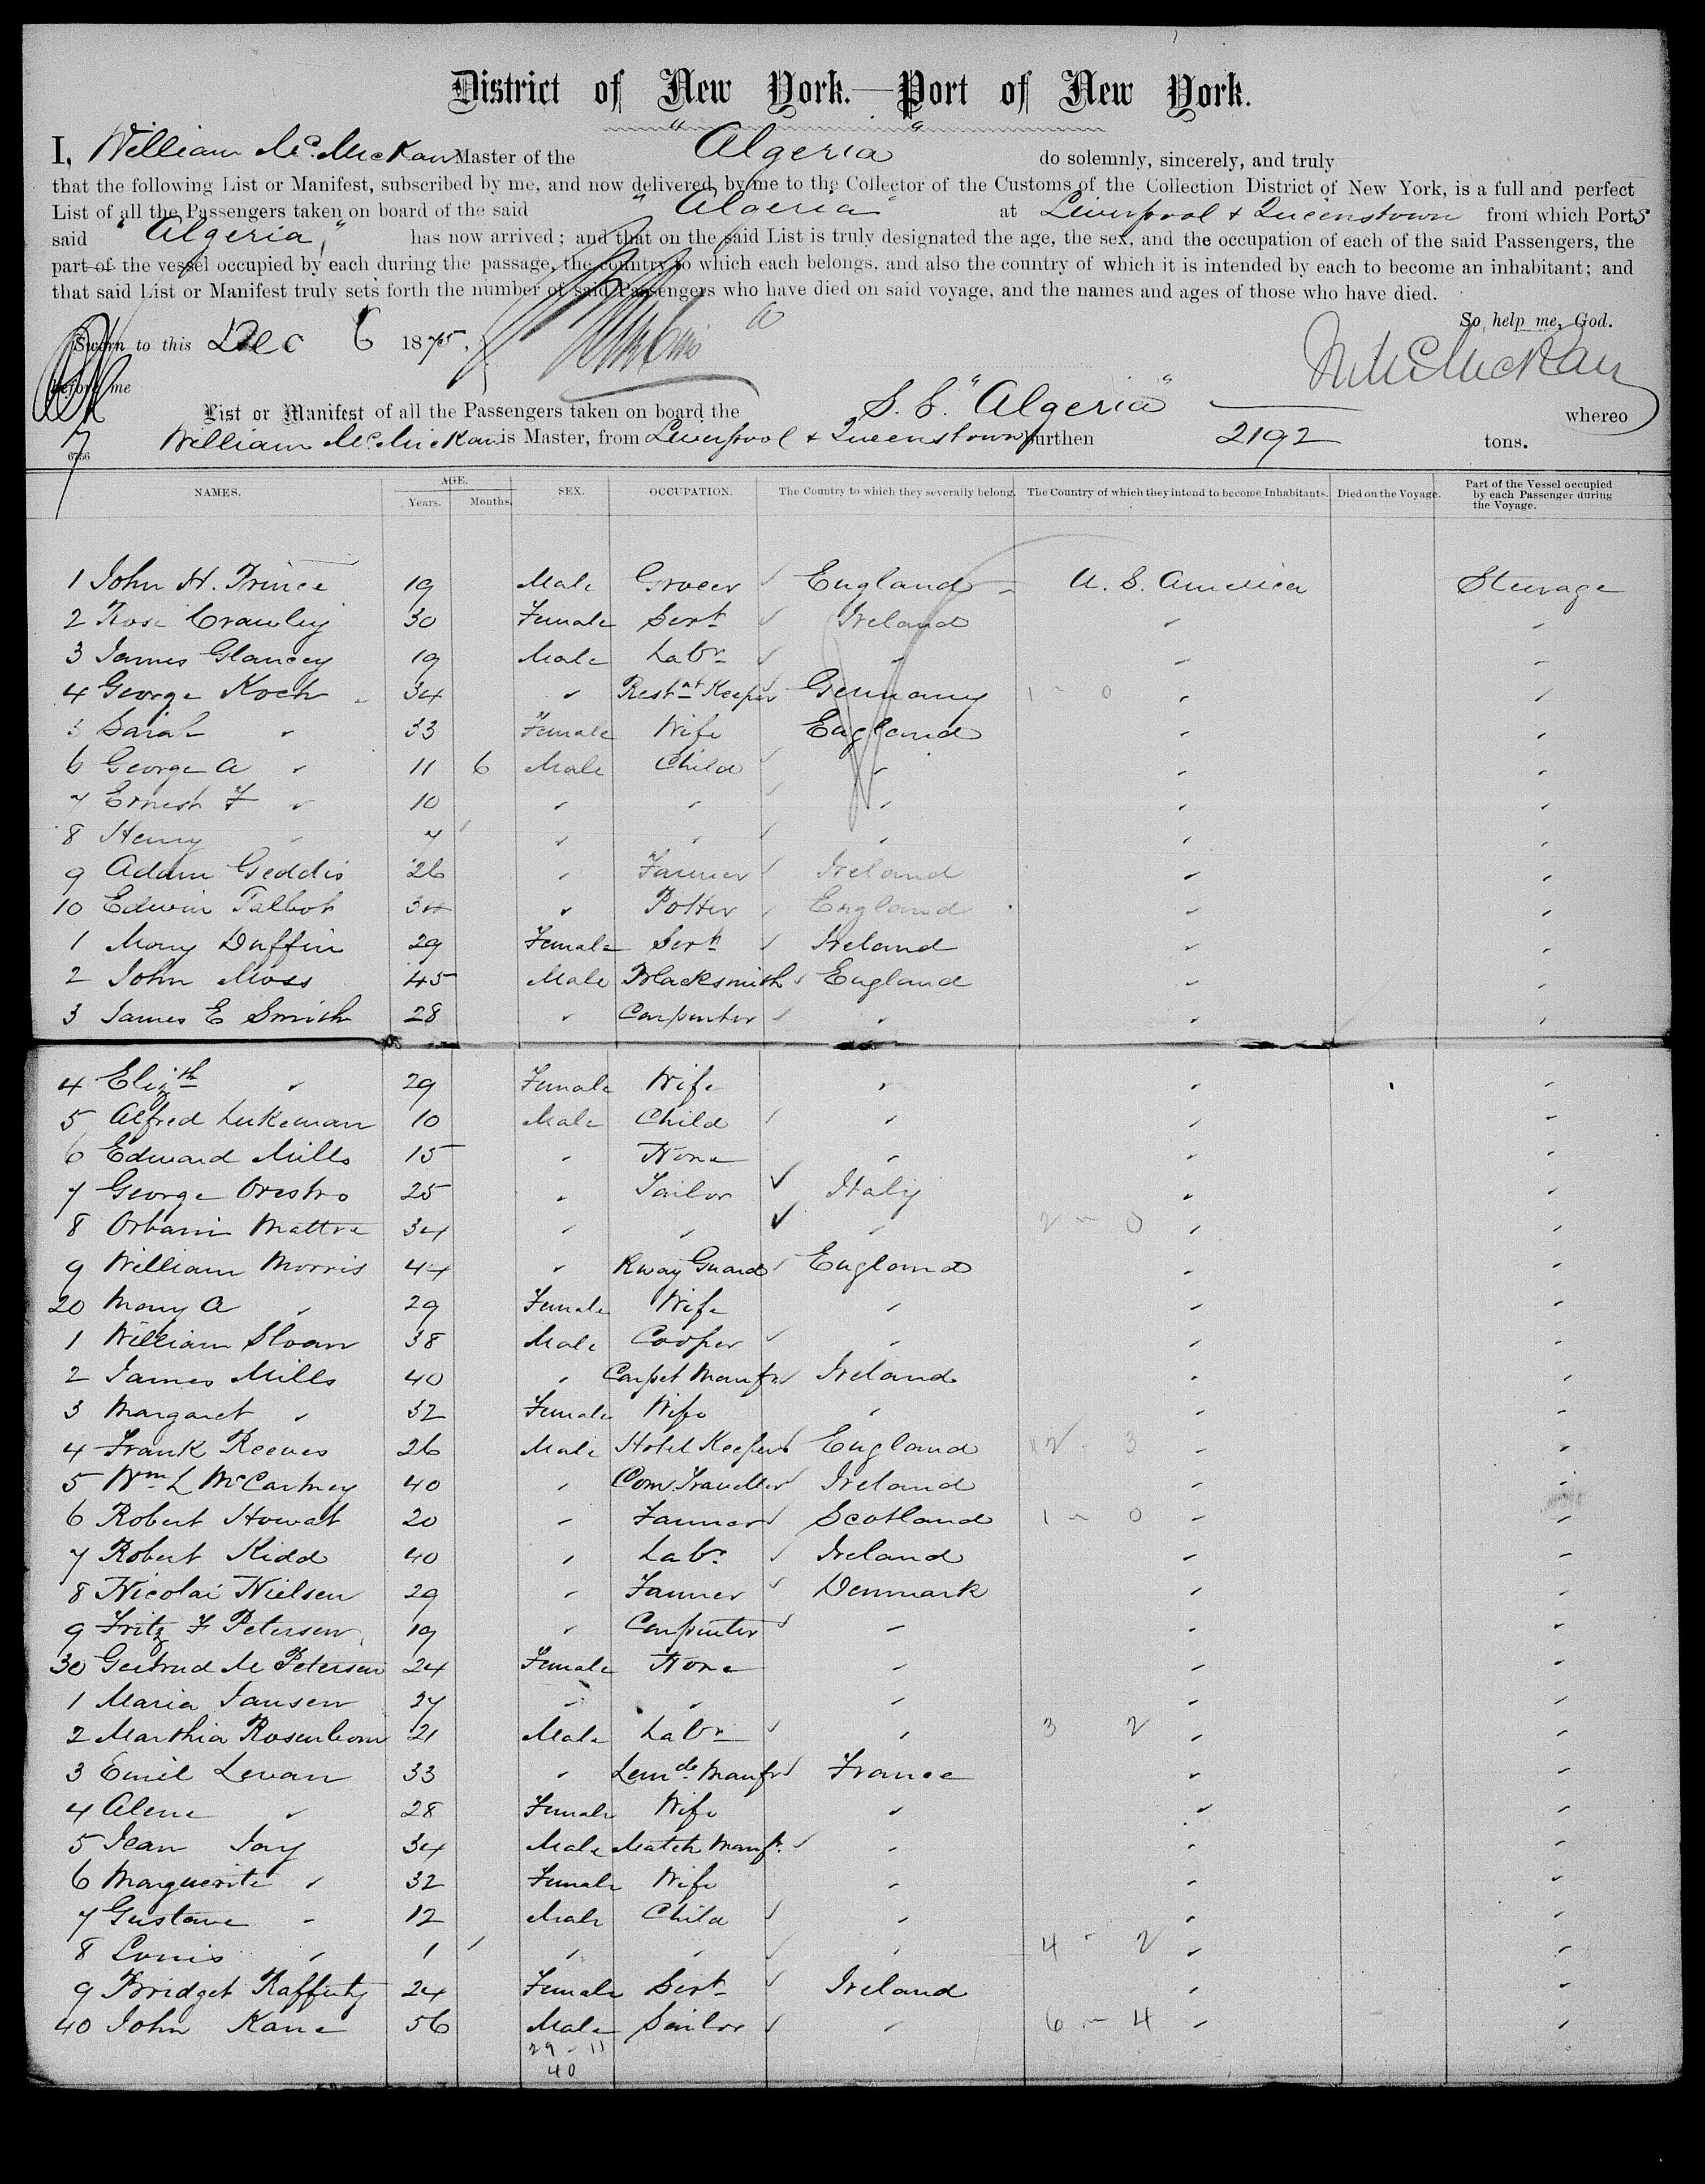 District of New York.—Port of New York.
I, William McMickan Master of the "Algeria" do solemnly, sincerely, and truly
that the following List or Manifest, subscribed by me, and now delivered by me to the Collector of the Customs of the Collection District of New York, is a full and perfect
List of all the Passengers taken on board of the said "Algeria" at Liverpool & Queenstown from which Ports
said "Algeria" has now arrived; and that on the said List is truly designated the age, the sex, and the occupation of each of the said Passengers, the
part of the vessel occupied by each during the passage, the country to which each belongs, and also the country of which it is intended by each to become an inhabitant; and
that said List or Manifest truly sets forth the number of said Passengers who have died on said voyage, and the names and ages of those who have died.
So help me, God.
Sworn to this Dec 6 1875.
W McMickan
before me
List or Manifest of all the Passengers taken on board the S.S. "Algeria" whereo
William McMickan is Master, from Liverpool & Queenstown burthen 2192 tons.
7
6756
NAMES. AGE. Years. Months. SEX. OCCUPATION. The Country to which they severally belong. The Country of which they intend to become Inhabitants. Died on the Voyage. Part of the Vessel occupied by each Passenger during the Voyage.
1 John H. Prince 19 Male Grocer England U. S. America Steerage
2 Rose Crawley 30 Female Servt Ireland " "
3 James Glancey 19 Male Labr " " "
4 George Koch 34 " Restnt Keeper Germany 1 - 0 " "
5 Sarah " 33 Female Wife England " "
6 George A " 11 6 Male Child " " "
7 Ernest F " 10 " " " " "
8 Henry " 7 " " " " "
9 Adam Geddis 26 " Farmer Ireland " "
10 Edwin Talbot " Potter England " "
1 Mary Duffin 29 Female Servt Ireland " "
2 John Moss 45 Male Blacksmith England " "
3 James E Smith 28 " Carpenter " " "
4 Elizth " 29 Female Wife " " "
5 Alfred Lukeman 10 Male Child " " "
6 Edward Mills 15 " None " " "
7 George Orestro 25 " Tailor Italy " "
8 Orbani Mattre 34 " " " 2 - 0 " "
9 William Morris 44 " Rway Guard England " "
20 Mary A " 29 Female Wife " " "
1 William Sloan 38 Male Cooper " " "
2 James Mills 40 " Carpet Manfr Ireland " "
3 Margaret " 32 Female Wife " " "
4 Frank Reeves 26 Male Hotel Keeper England 2 - 3 " "
5 Wm L McCartney 40 " Com. Traveller Ireland " "
6 Robert Howat 20 " Farmer Scotland 1 - 0 " "
7 Robert Kidd 40 " Labr Ireland " "
8 Nicolai Nielsen 29 " Farmer Denmark " "
9 Fritz F Petersen 19 " Carpenter " " "
30 Gertrud M Petersen 24 Female None " " "
1 Maria Jansen 27 " " " " "
2 Marthia Rosenbom 21 Male Labr " 3 2 " "
3 Emil Levan 33 " Lemde Manfr France " "
4 Alene " 28 Female Wife " " "
5 Jean Jay 34 Male Match Manfr " " "
6 Marguerite " 32 Female Wife " " "
7 Gustave " 12 Male Child " " "
8 Louis " 1 " " " 4 - 2 " "
9 Bridget Rafferty 24 Female Servt Ireland " "
40 John Kane 56 Male Sailor " 6 - 4 " "
29 - 11
40